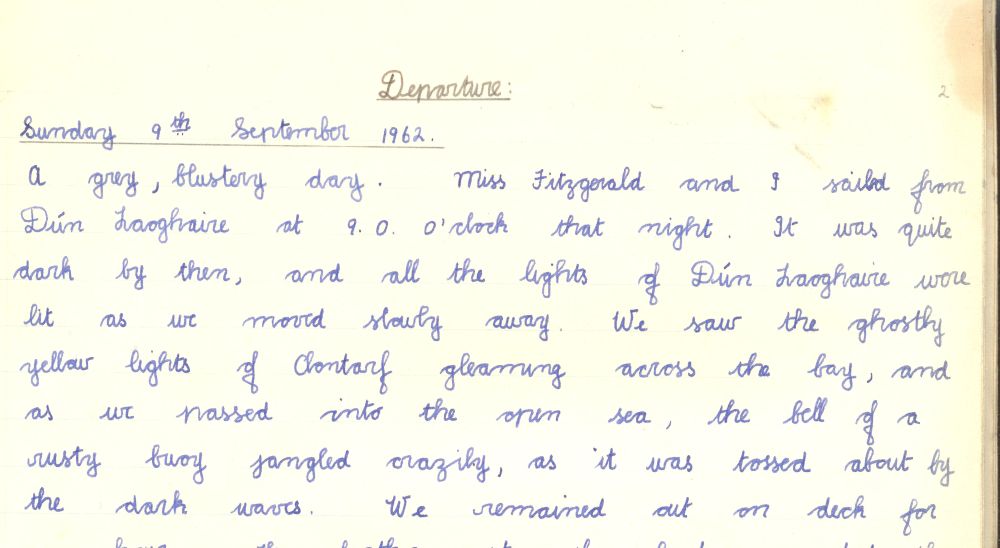 Departure:
2
Sunday 9th September 1962.
A grey, blustery day. Miss Fitzgerald and I sailed from
Dún Laoghaire at 9.0. o'clock that night. It was quite
dark by then, and all the lights of Dún Laoghaire were
lit as we moved slowly away. We saw the ghostly
yellow lights of Clontarf gleaming across the bay, and
as we passed into the open sea, the bell of a
rusty buoy jangled crazily, as it was tossed about by
the dark waves. We remained out on deck for